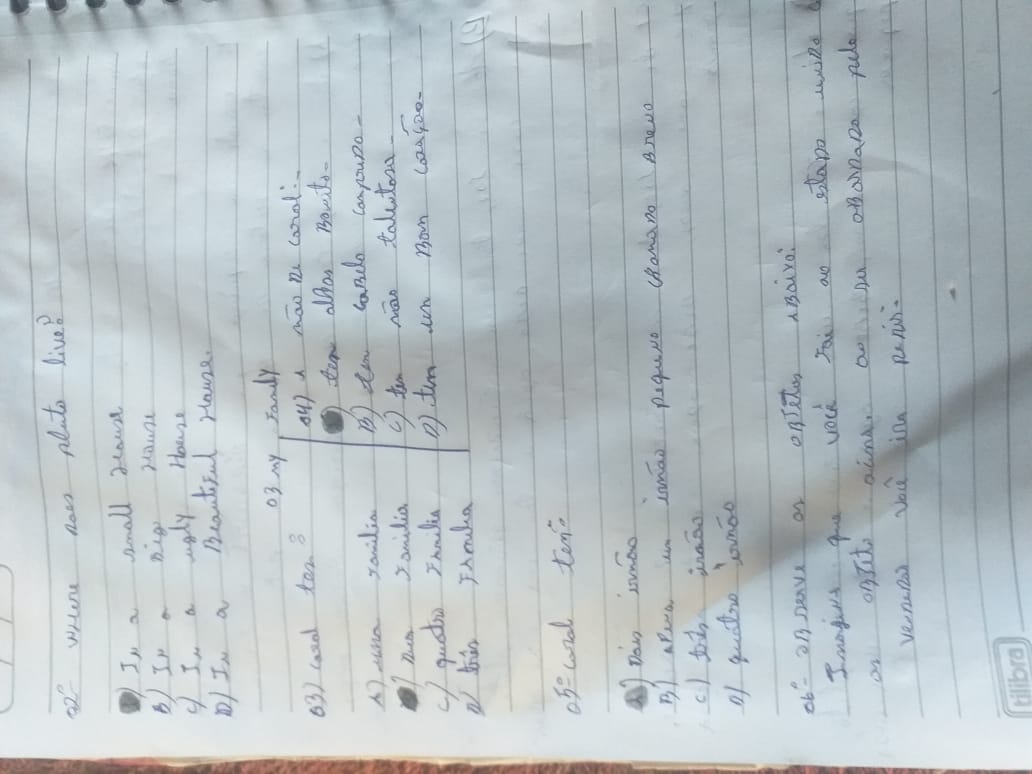 02º- where does pluto live?
A) In a small House
B) In a Big House
C) In a ugly House
D) In a Beautiful House.
03 my Family
03) carol tem?
A) uma Familia
B) Duas Familia
C) quatro Familia
D) três Familia
04) A mão De carol:
A) tem olhos Bonito-
B) tem cabelo comprido-
C) tem mão talentosa-
D) tem um Bom coração-
05º- carol tem:
A) Dois irmão
B) Apenas um irmão pequeno chamado Breno
C) três irmão
D) quatro irmão
06º- OBserve os OBJETOS ABaixo:
Imagine que você Foi ao estado unido
os OBJETO acima, ao ser ABORDADO pelo
vendedor você ira pedir-
tilibra